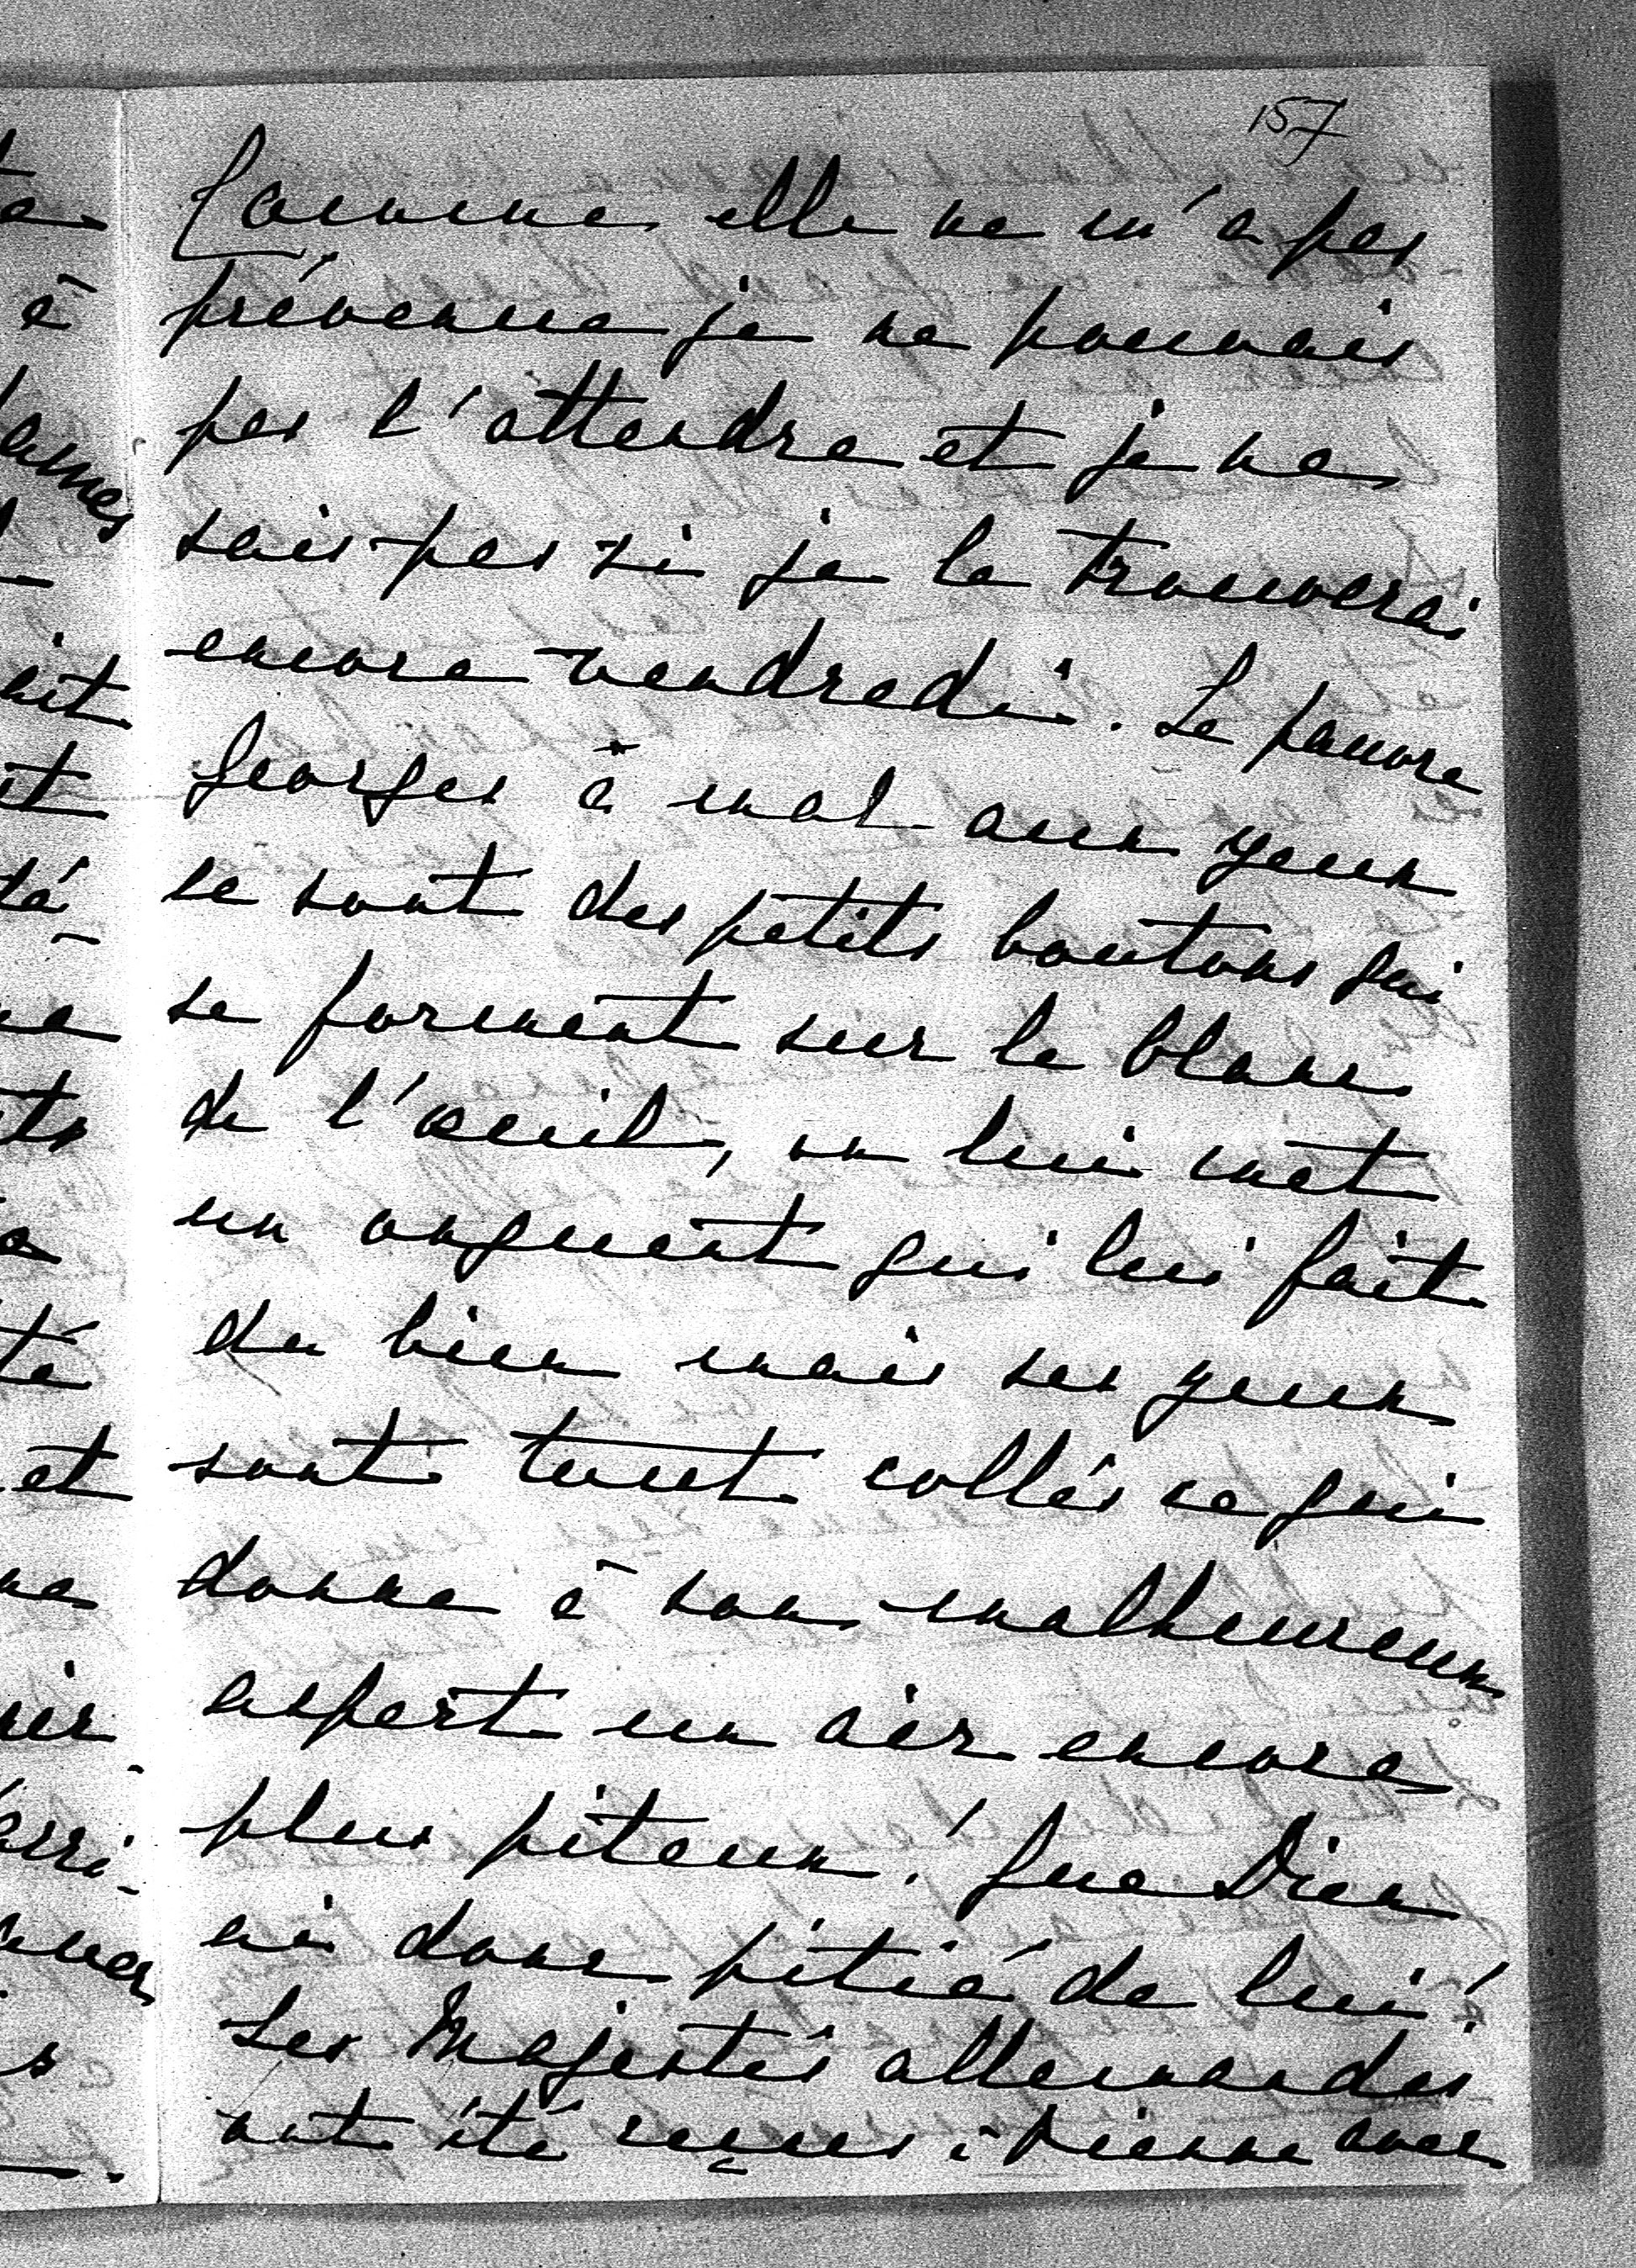 157
Comme elle ne m'a pas
prévenue je ne pouvais
pas l'attendre et je ne
sais pas si je la trouverai
encore vendredi. Le pauvre
Georges à mal aux yeux
ce sont des petits boutons qui
se forment sur le blanc
de l'oeuil, on lui met
un onguent qui lui fait
du bien mais ses yeux
sont tout collés ce qui
donne à son malheureux
aspect un air encore
plus piteux! Que Dieu
ai donc pitié de lui!
Les Majestés allemandes
ont été reçues à Vienne avec